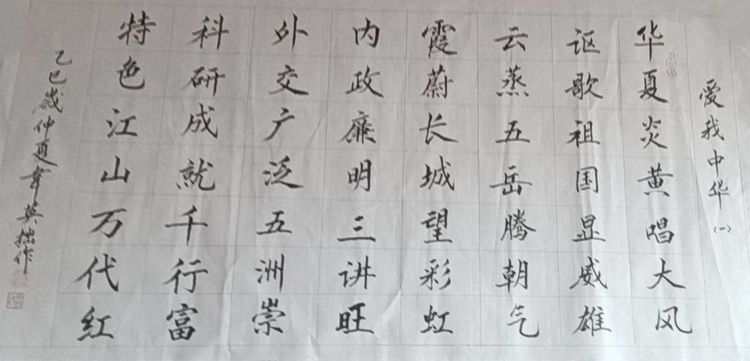 爱我中华（一）
华夏炎黄唱大风
讴歌祖国显威雄
云蒸五岳腾朝气
霞蔚长城望彩虹
内政廉明三讲旺
外交广泛五洲崇
科研成就千行富
特色江山万代红
乙巳岁仲夏韦英拙作